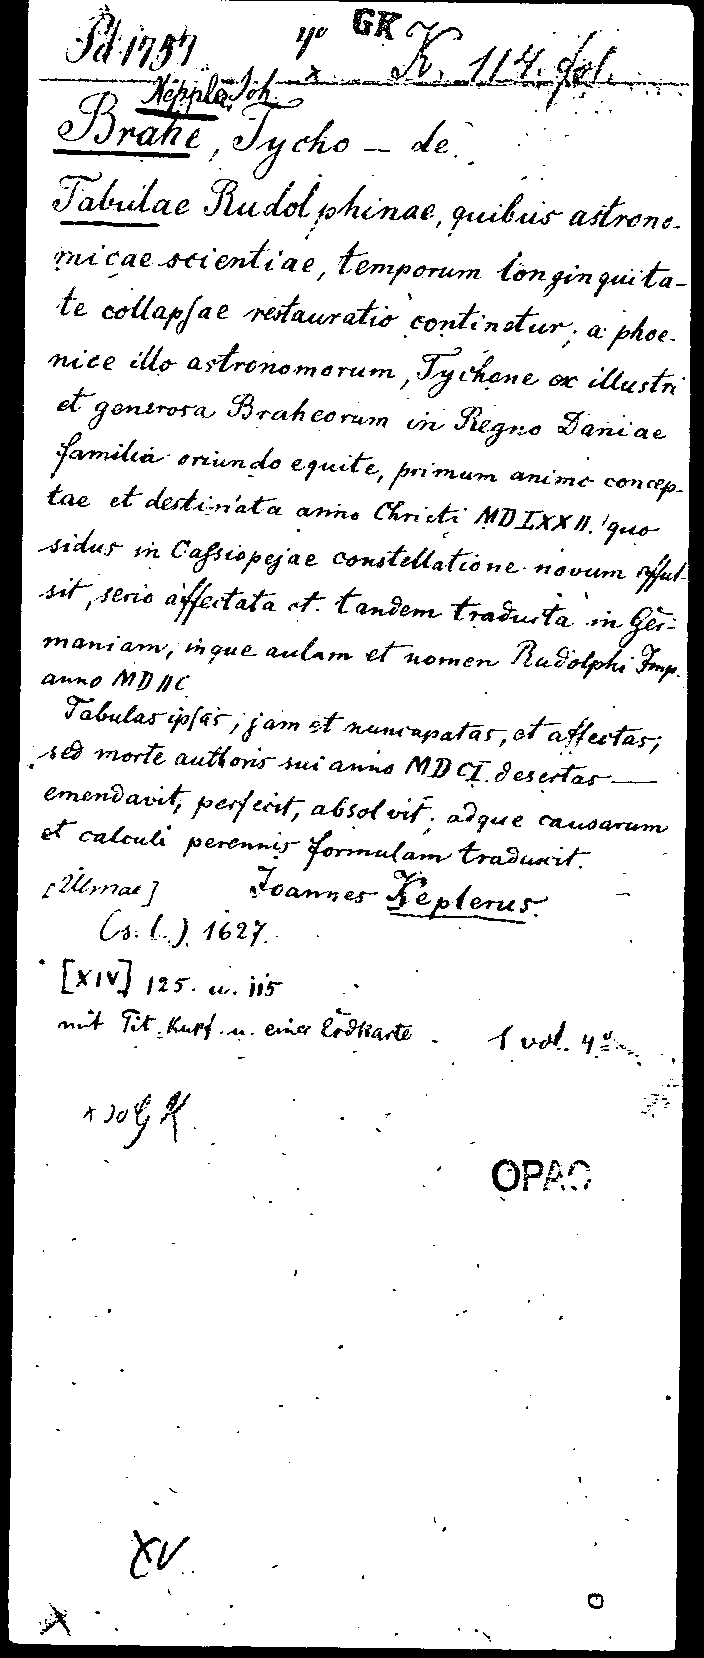 Pd 1757 4o GK K. 114. fol.
x
Keppler Joh.
Brahe, Tycho — de.
Tabulae Rudolphinae, quibus astrono-
micae scientiae, temporum longinquita-
te collapsae restauratio continetur; a phoe-
nice illo astronomorum, Tychone ex illustri
et generosa Braheorum in Regno Daniae
familia oriundo equite, primum animo concep-
tae et destinata anno Christi MDLXXII. quo
sidus in Cassiopejae constellatione novum efful-
sit, serio affectata et tandem traducta in Ger-
maniam, inque aulam et nomen Rudolphi Imp.
anno MDIIC
Tabulas ipsas, jam et nuncupatas, et affectas;
sed morte authoris sui anno MDCI. desertas —
emendavit, perfecit, absolvit; adque causarum
et calculi perennis formulam traduxit.
[Ulmae] Joannes Keplerus.
(s. l.) 1627.
[XIV] 125. u. 115
mit Tit. Kupf. u. einer Erdkarte 1 vol. 4o
GK
OPAC
XV